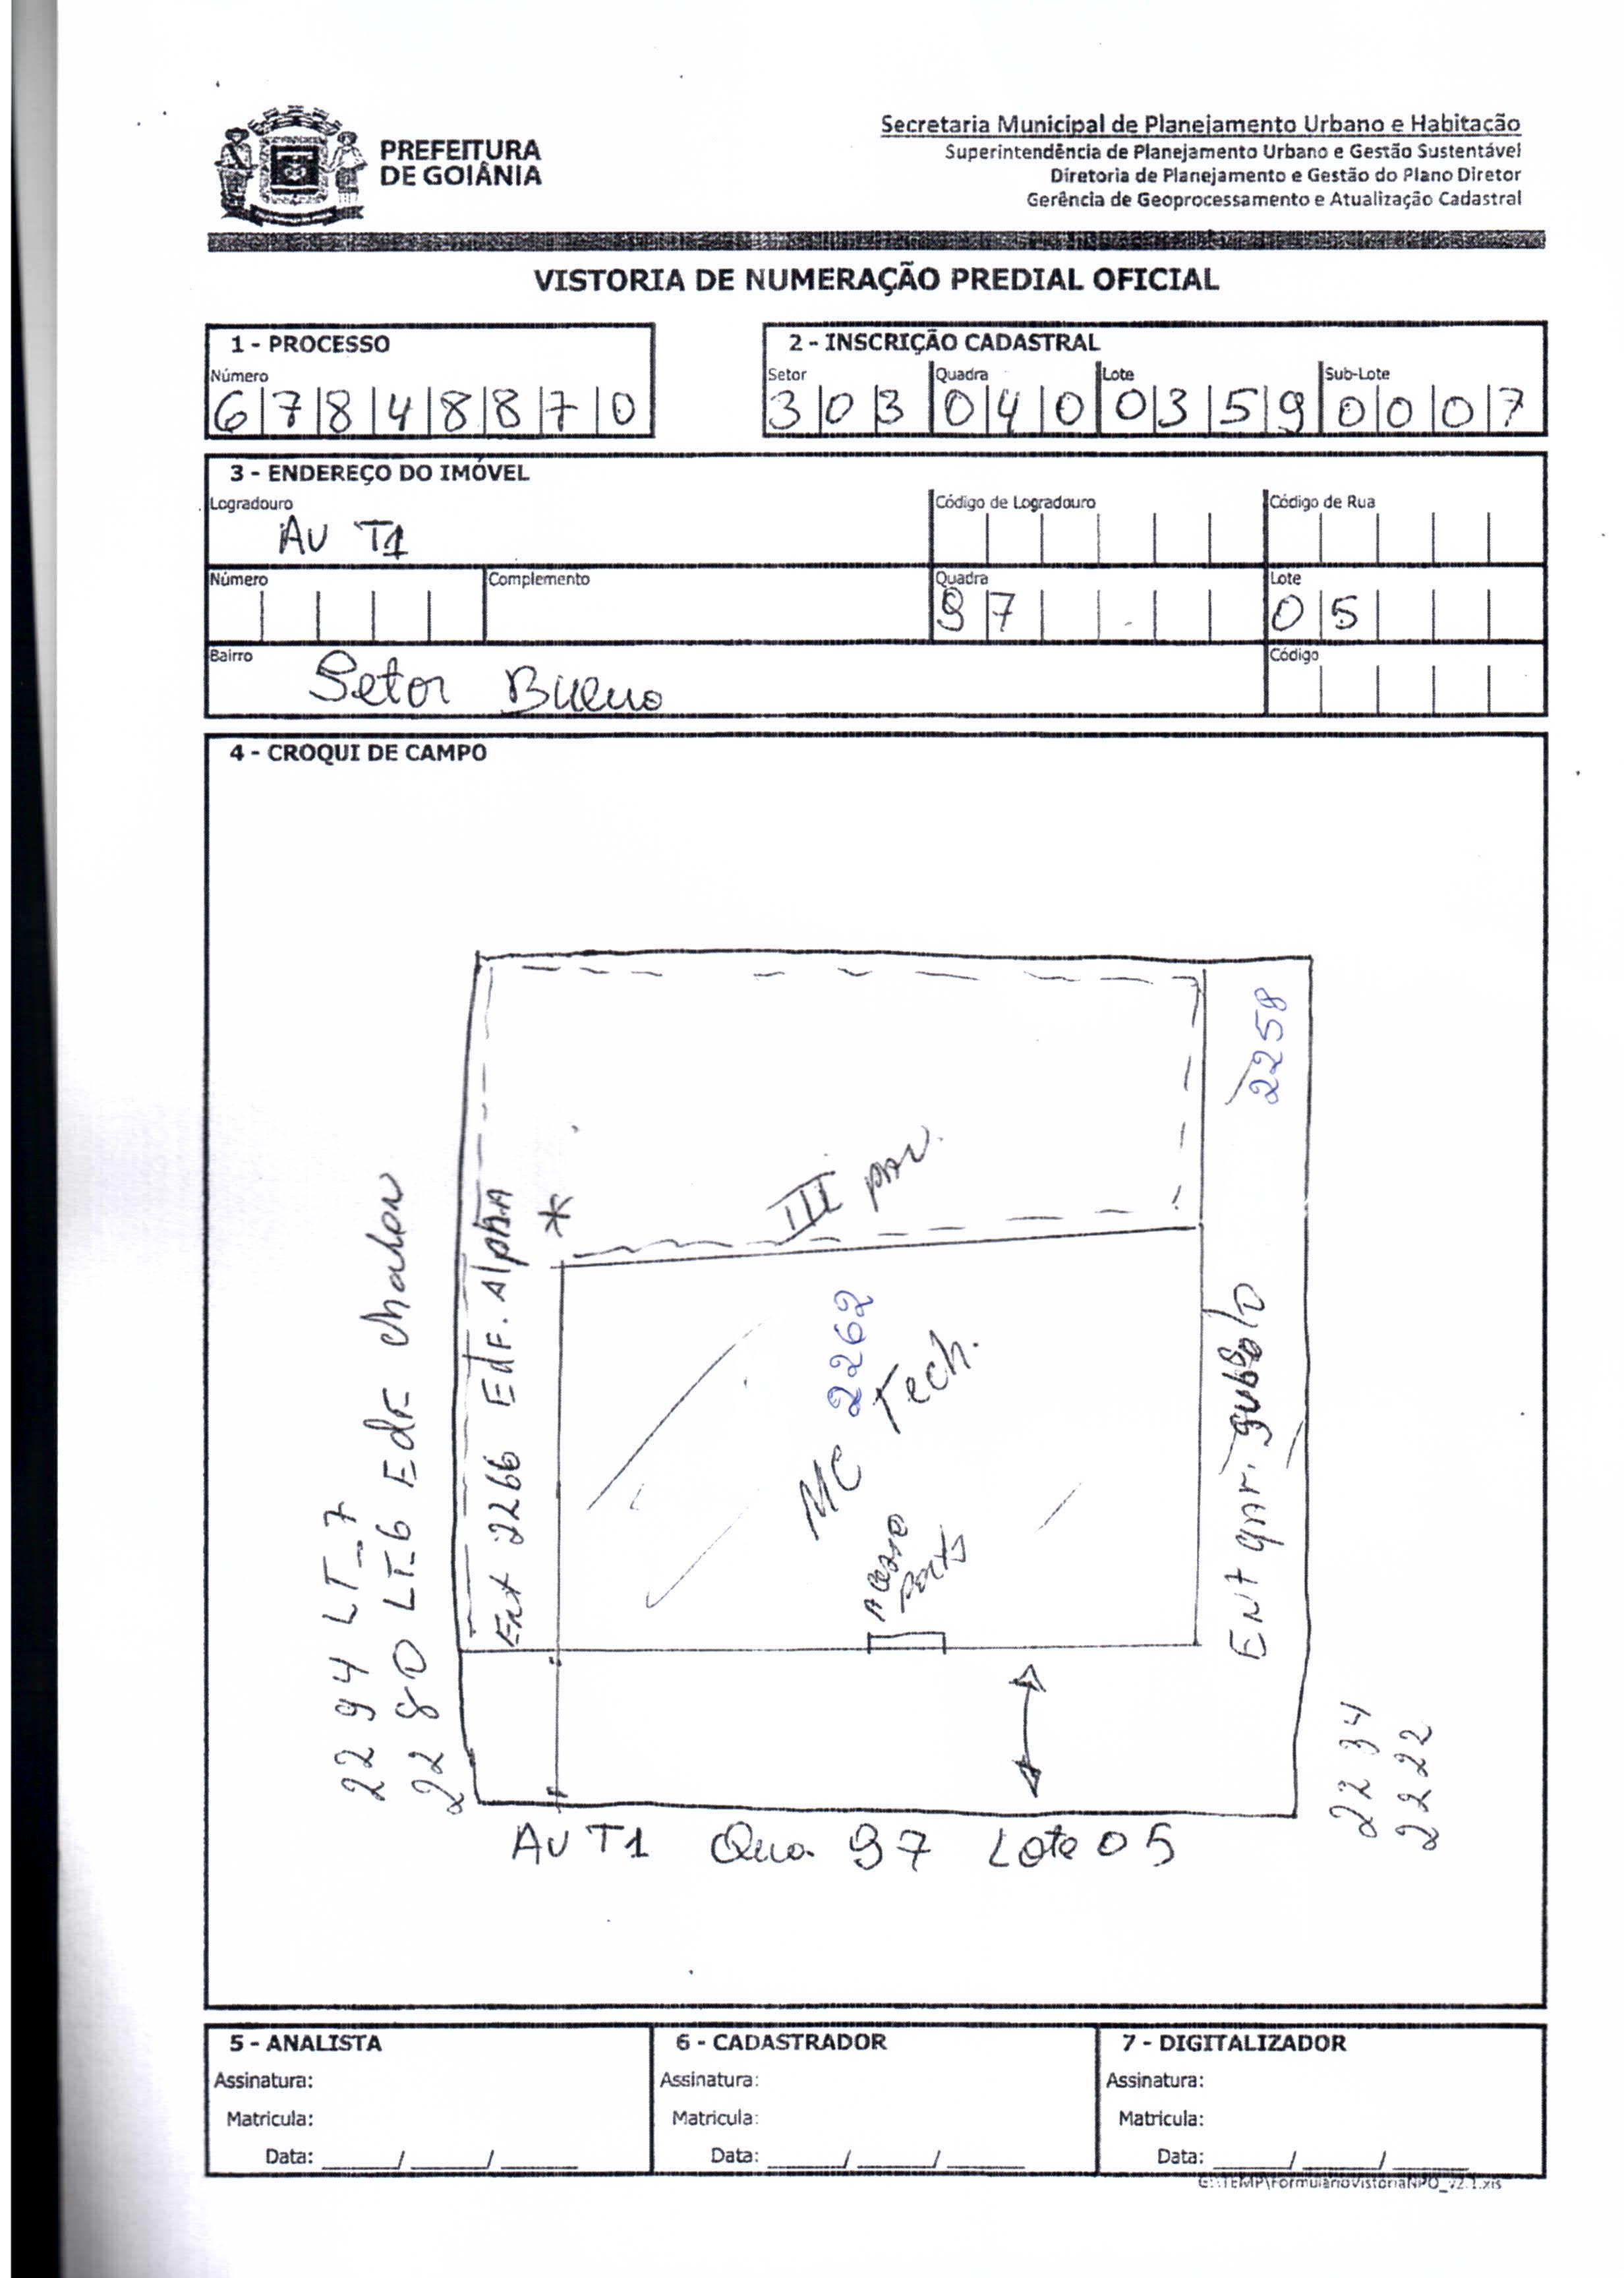 PREFEITURA
DE GOIÂNIA
Secretaria Municipal de Planejamento Urbano e Habitação
Superintendência de Planejamento Urbano e Gestão Sustentável
Diretoria de Planejamento e Gestão do Plano Diretor
Gerência de Geoprocessamento e Atualização Cadastral
VISTORIA DE NUMERAÇÃO PREDIAL OFICIAL
1 - PROCESSO
Número
67848870
2 - INSCRIÇÃO CADASTRAL
Setor Quadra Lote Sub-Lote
303 040 0359 0007
3 - ENDEREÇO DO IMÓVEL
Logradouro Código de Logradouro Código de Rua
AV T1
Número Complemento Quadra Lote
97 05
Bairro Código
Setor Bueno
4 - CROQUI DE CAMPO
2294 LT_7
2280 LT_6 Edf
22
Ent 2266 Edf. Alpha
*
III pav.
2262
MC Tech.
Acesso
Ent gar. subsolo
2258
2234
2222
AV T1 Qua. 97 Lote 05
5 - ANALISTA
Assinatura:
Matricula:
Data: ____/____/____
6 - CADASTRADOR
Assinatura:
Matricula:
Data: ____/____/____
7 - DIGITALIZADOR
Assinatura:
Matricula:
Data: ____/____/____
G:\TEMP\FormularioVistoriaNPO_v2.1.xls